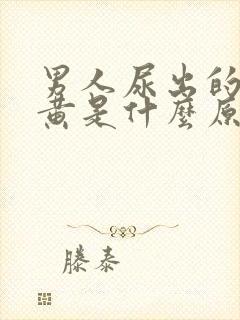 男人尿出的
黄是什麼原
滕泰